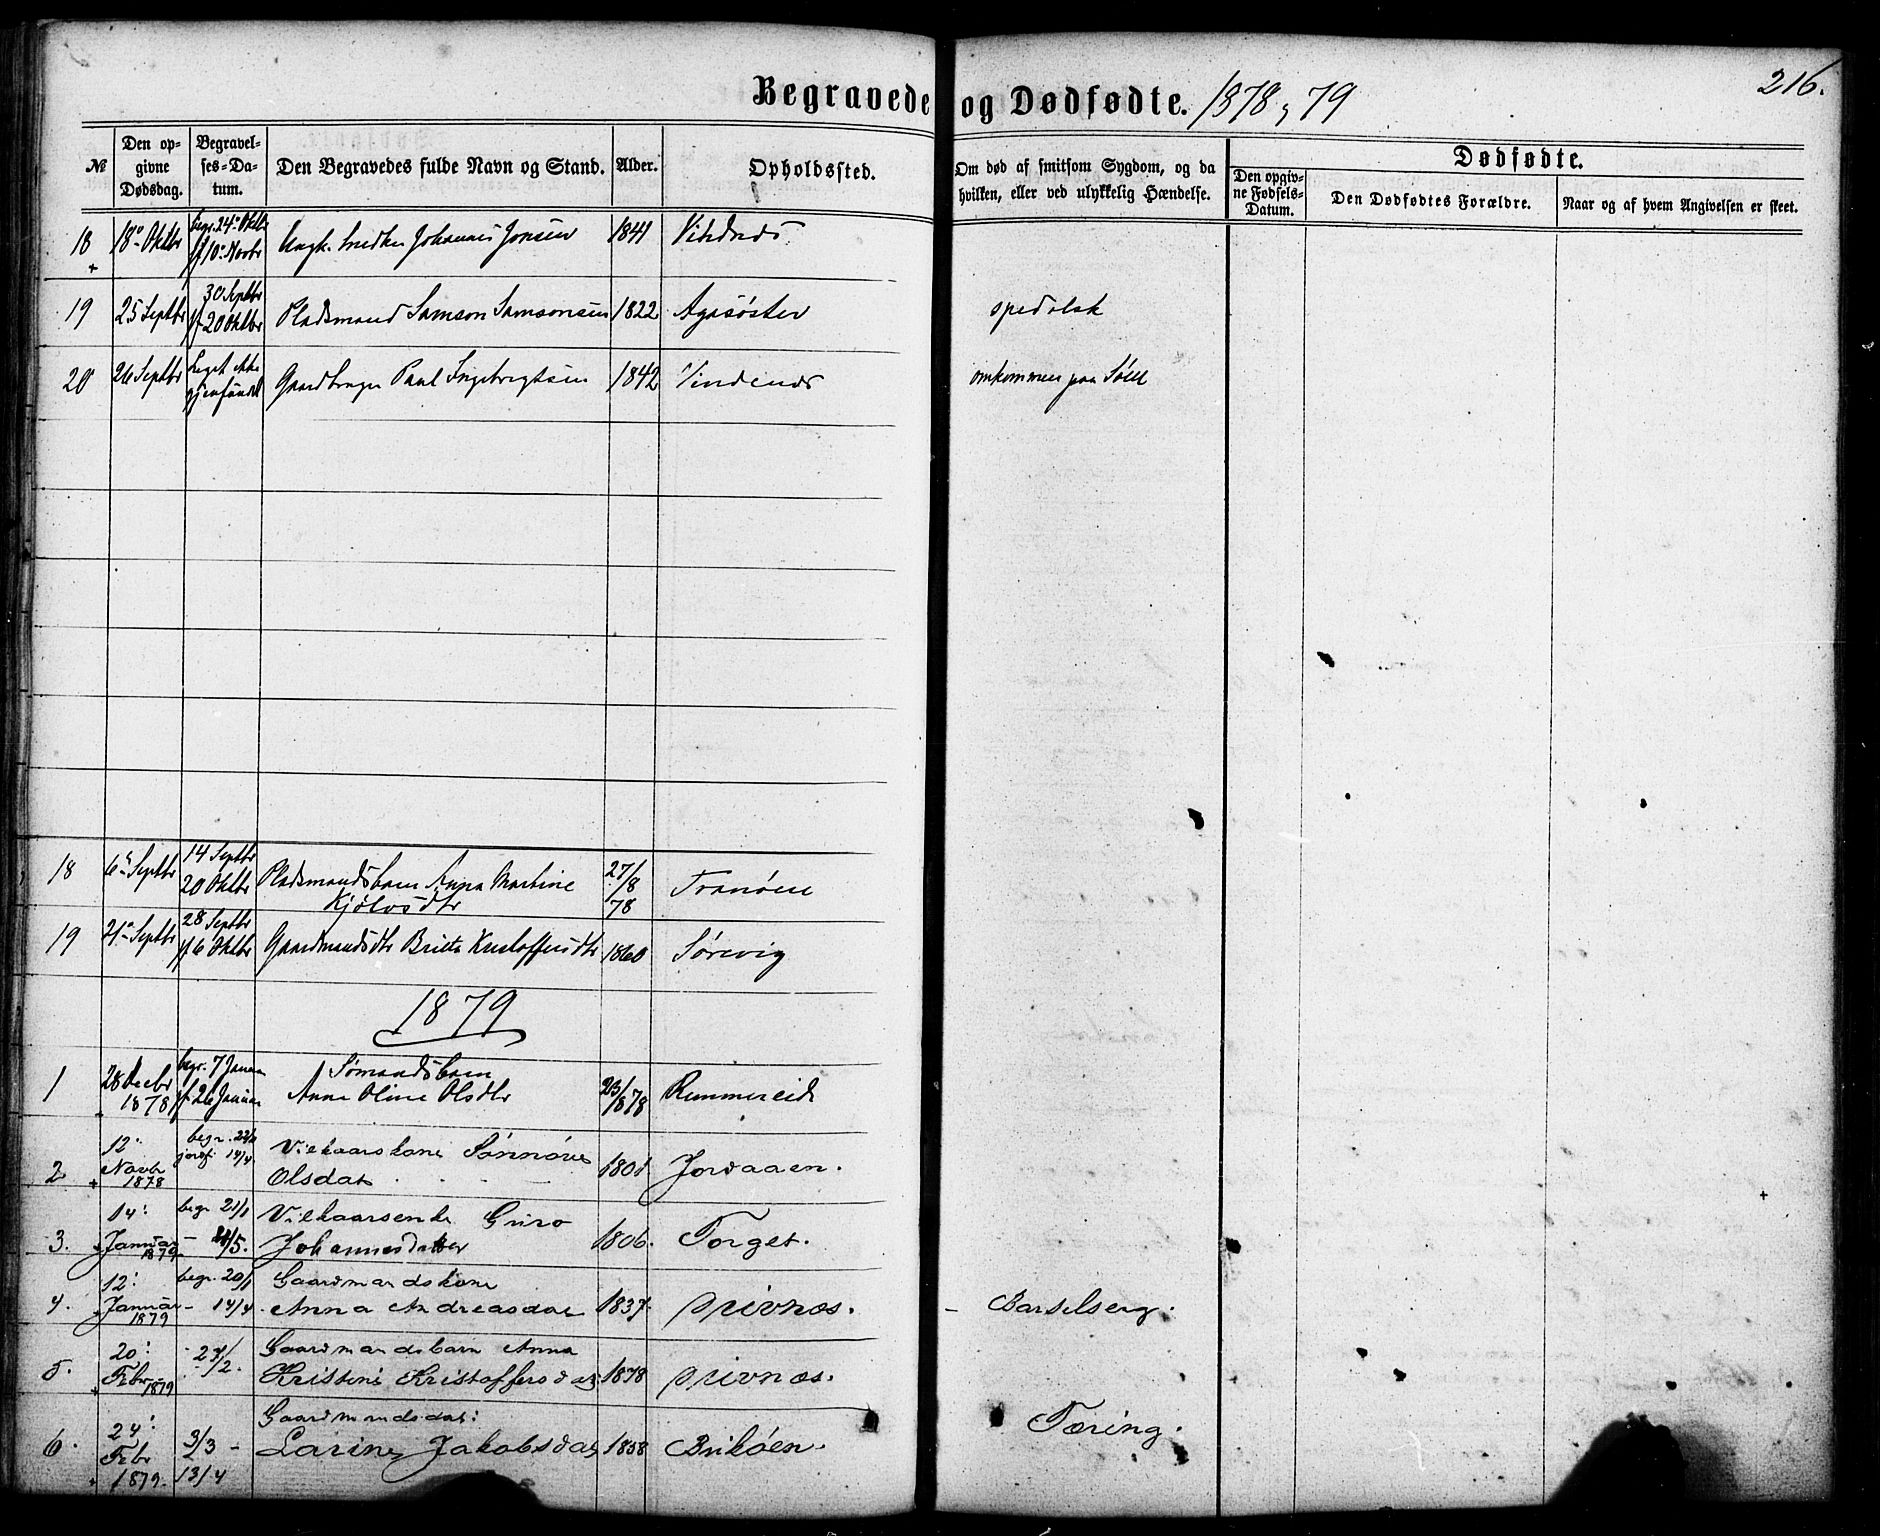 216.
Begravede og Dødfødte. 1878, 79
№
Den opgivne Dødsdag.
Begravelses-Datum.
Den Begravedes fulde Navn og Stand.
Alder.
Opholdssted.
Om død af smitsom Sygdom, og da hvilken, eller ved ulykkelig Hændelse.
Dødfødte.
Den opgivne Fødsels-Datum.
Den Dødfødtes Forældre.
Naar og af hvem Angivelsen er skeet.
18 18de Oktbr begr. 24de Oktbr Ungk. Johannes Jonsen 1841
jf 10de Novbr
19 25 Septbr 30 Septbr Pladsmand Samson Samsonsen 1822 Agasøster spedalsk
jf 20 Oktbr
20 26 Septbr Liget ikke Gaardbruger Paul Ingebrigtsen 1842 Vindenæs omkommen paa Søen
gjenfundet
18 6te Septbr 14 Septbr Pladsmandsbarn Anna Martine 27/8 78 Tranøen
20 Oktbr Kjølvsdtr
19 21de Septbr 28 Septbr Gaardmandsdtr Brita Kristoffersdtr 1860 Sørevig
jf 6 Oktbr
1879
1 28 Decbr begr. 7 Januar Sømandsbarn
1878 jf 26 Januar Anne Oline Olsdtr 23/1878 Rommereide
2 12: begr. Vilkaarskone Sønnøve
Novbr 1878 jordf: 14/4. Olsdat 1801 Jordaaen.
3. 14: begr 21/1 Vilkaarsenke Guro
Januar 1879 – /5. Johannesdatter 1806. Torget.
4. 12: begr. 20/1 Gaardmandskone
Januar 1879 – 14/4. Anna Andreasdat 1837. – Barselseng.
5. 20: 27/2. Gaardmandsbarn Anna
Febr 1879 Kristine Kristoffersdat 1878
6. 24: Gaardmandsdat:
Febr 3/3 – Larine Jakobsdat 1858 Tæring.
1879. 13/4